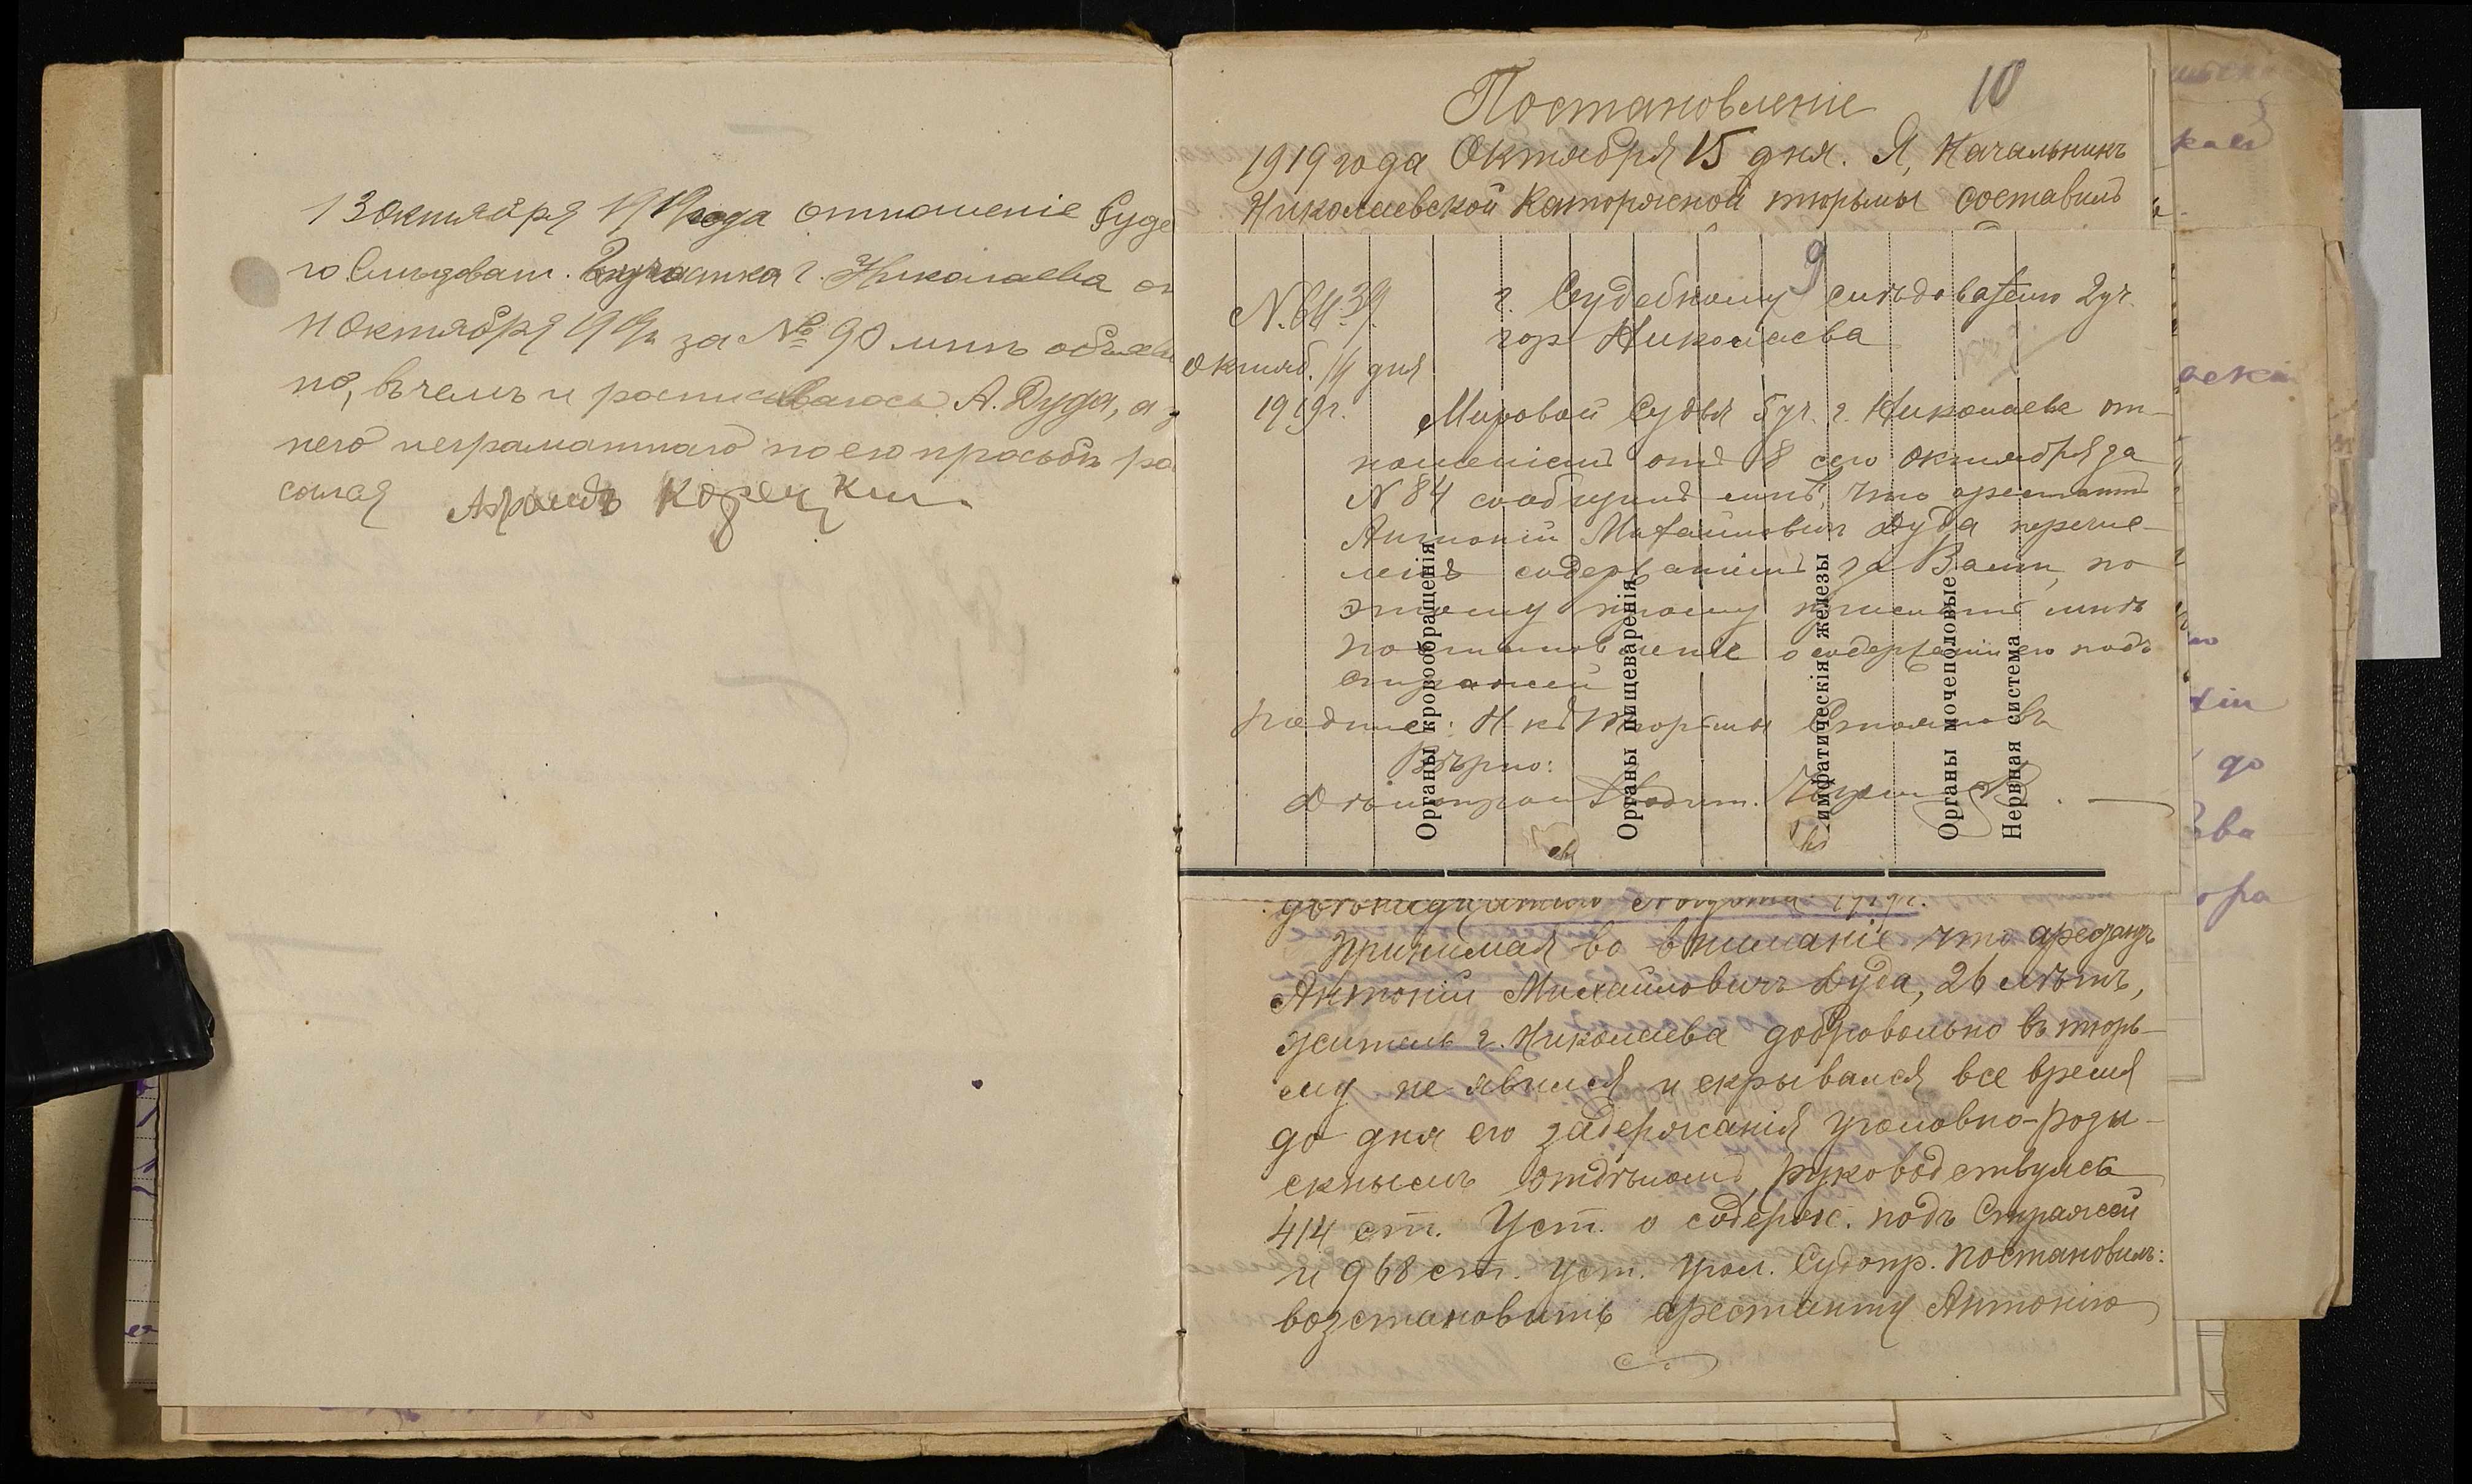 13 Октября 1919 года отношеніе Суде
го Слѣдоват. 2 участка г. Николаева от
11 Октября 1919 г. за № 90 мнѣ объявле
но, въ чемъ и росписываюсь. А. Дуда, а з
него неграмотнаго по его просьбѣ ра
сался Абрамъ Корецкій
10
Постановленіе
1919 года Октября 15 дня. Я, Начальникъ
Николаевской Каторжной тюрьмы составилъ
9
N. 6439.
Октяб. 14 дня
1919 г.
г. Судебному слѣдователю 2 уч.
гор Николаева
Мировой Судья 5 уч. г. Николаева от-
ношеніемъ отъ 8 сего Октября за
N 84 сообщилъ мнѣ, что арестантъ
Антоній Михайловичъ Дуда перечис-
ленъ содержаніемъ за Вами, по
этому прошу прислать мнѣ
постановленіе о содержаніи его подъ
стражей
Подпис: Н-къ Тюрьмы
Вѣрно:
Органы кровообращенія
Органы пищеваренія
имфатическія железы
Органы мочеполовые
Нервная система
1919 г.
Принимая во вниманіе что арестантъ
Антоній Михайловичъ Дуда, 26 лѣтъ,
житель г. Николаева добровольно въ тюрь-
му не явился и скрывался все время
до дня его задержанія Уголовно-розы-
скнымъ отдѣломъ, руководствуясь
414 ст. Уст. о содерж. подъ Стражей
и 968 ст. Уст. Угол. Судопр. постановилъ:
возстановить арестанту Антонію